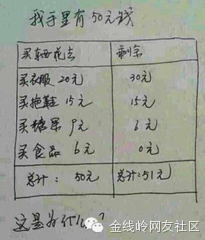 我手里有50元钱
买东西花去 剩余
买衣服 20元 30元
买拖鞋 15元 15元
买糖果 9元 6元
买食品 6元 0元
总计: 50元 总计:51元
这是为什么?
金线岭网友社区